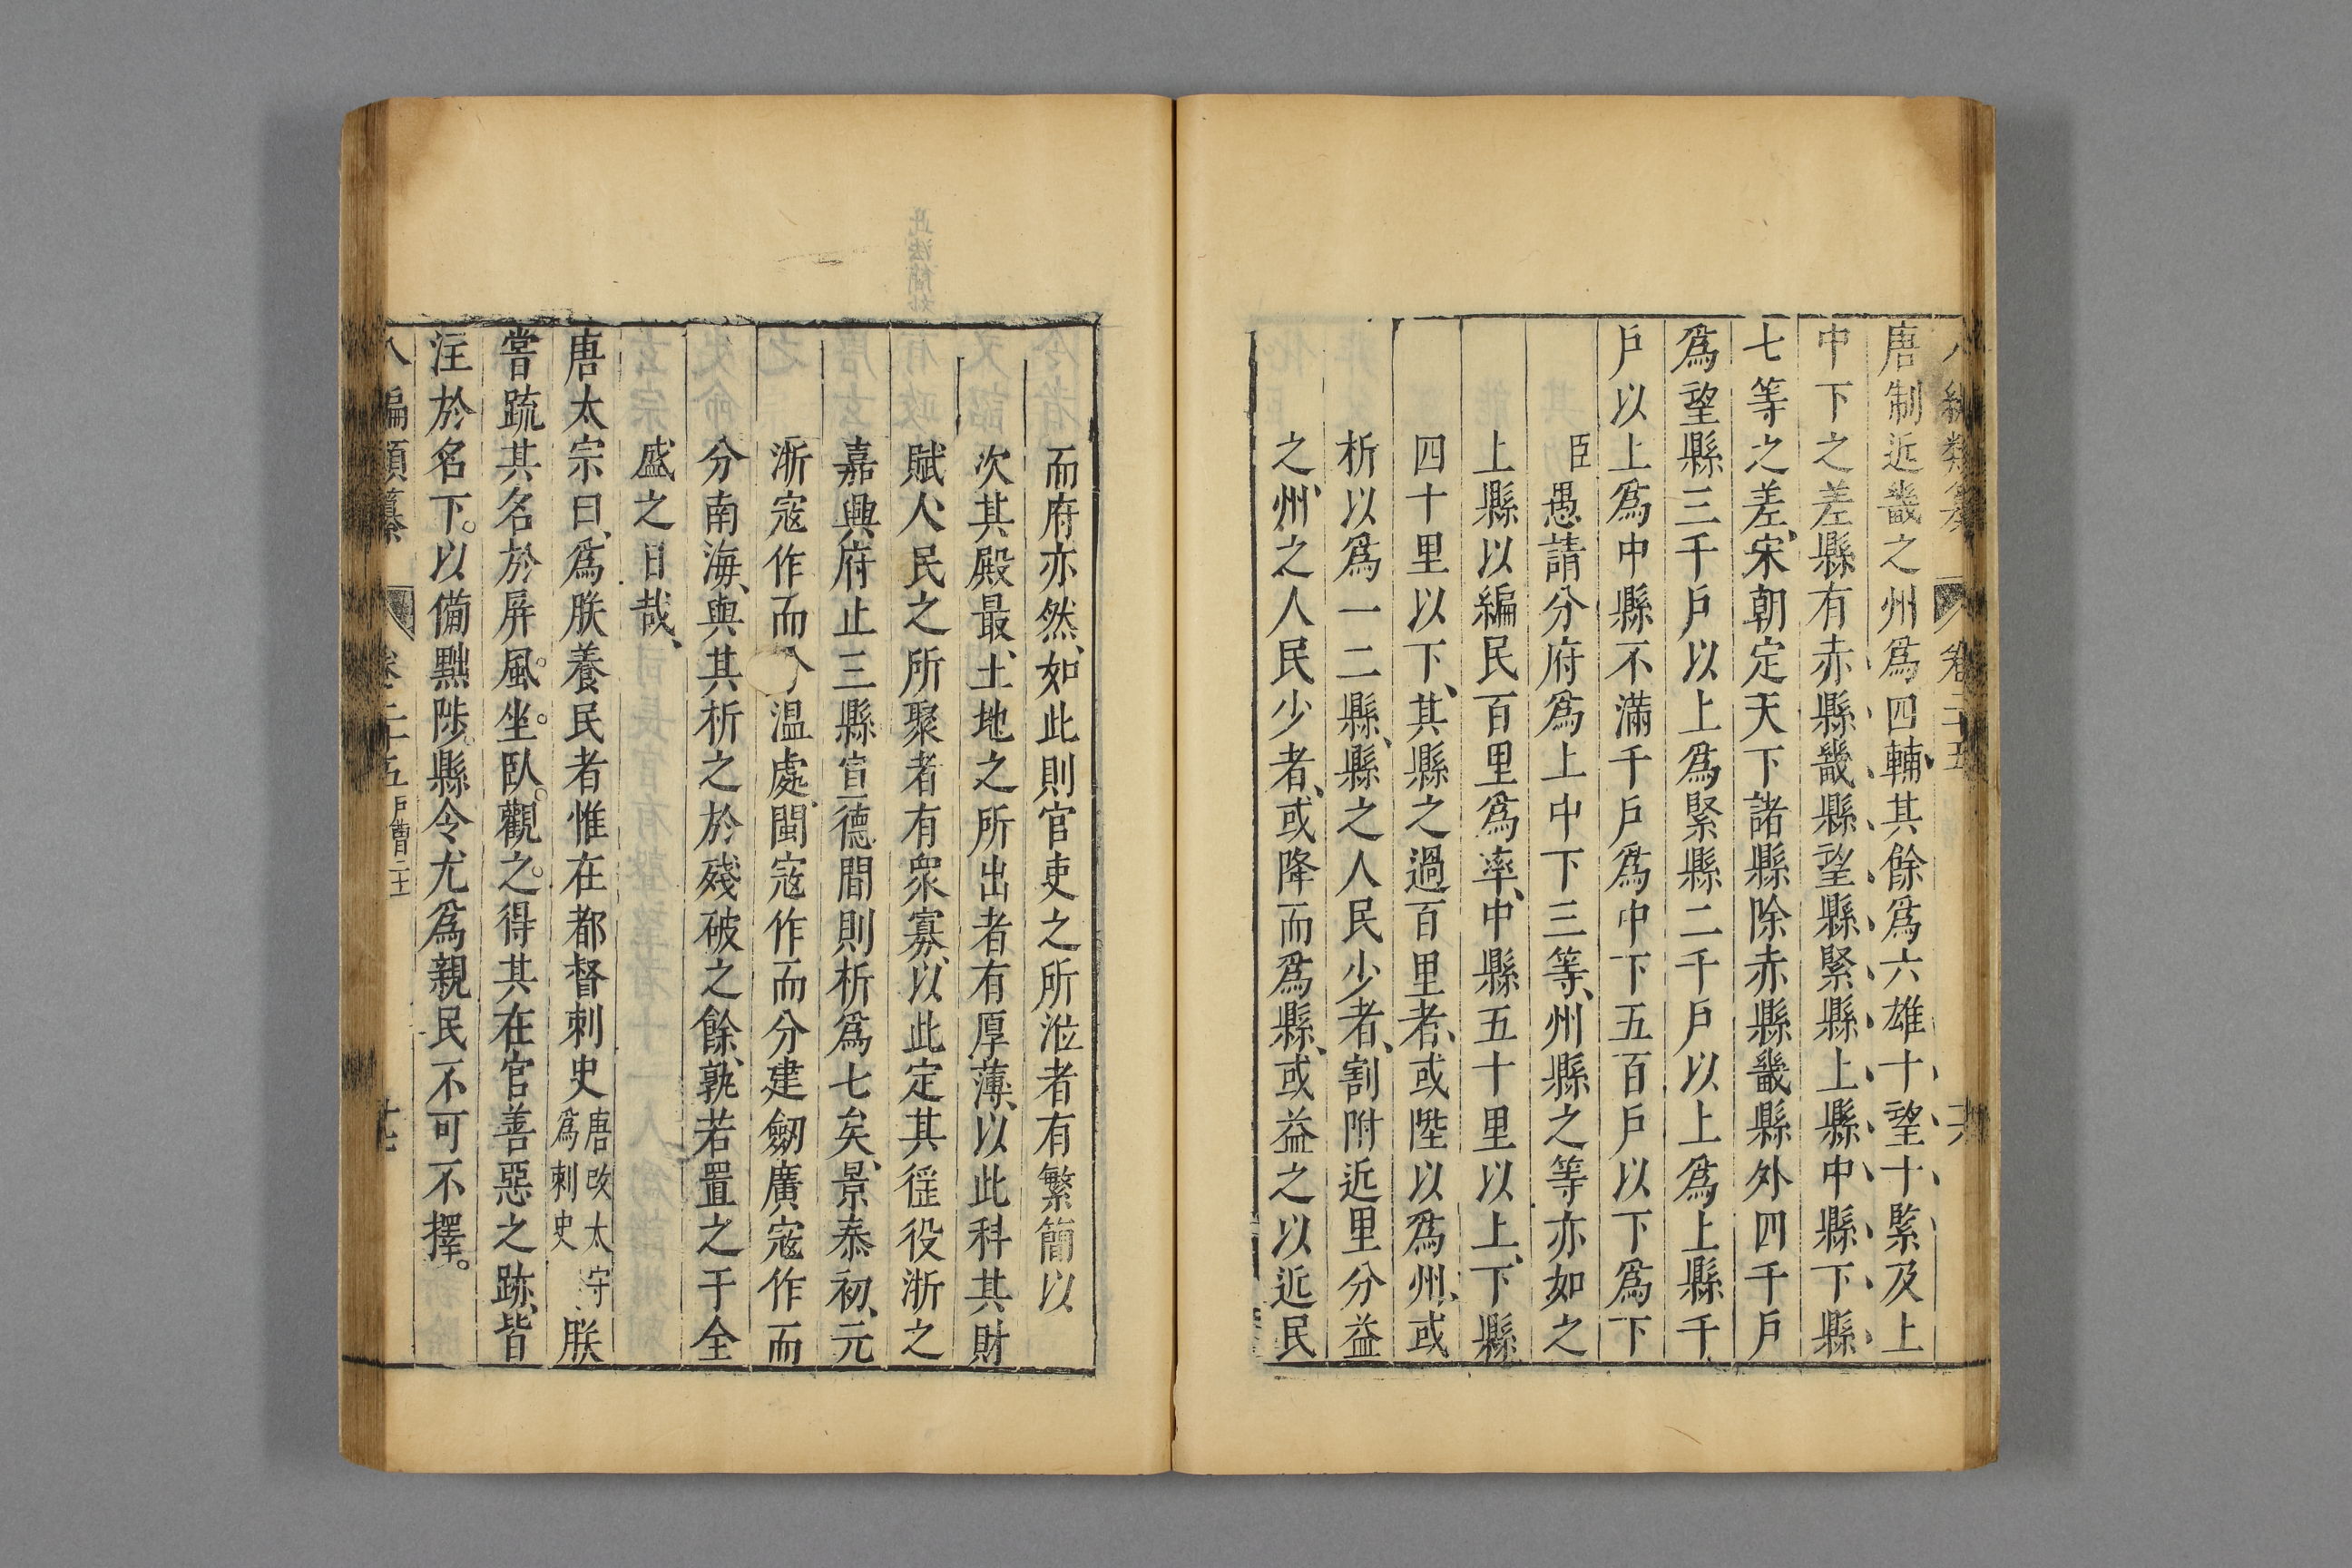 唐制近畿之州爲四輔其餘爲六雄十望十緊及上
中下之差縣有赤縣畿縣望縣緊縣上縣中縣下縣
七等之差宋朝定天下諸縣除赤縣畿縣外四千戶
爲望縣三千戶以上爲緊縣二千戶以上爲上縣千
戶以上爲中縣不滿千戶爲中下五百戶以下爲下
臣愚請分府爲上中下三等州縣之等亦如之
上縣以編民百里爲率中縣五十里以上下縣
四十里以下其縣之過百里者或陞以爲州或
析以爲一二縣縣之人民少者割附近里分益
之州之人民少者或降而爲縣或益之以近民
而府亦然如此則官吏之所涖者有繁簡以
次其殿最土地之所出者有厚薄以此科其財
賦人民之所聚者有衆寡以此定其徭役浙之
嘉興府止三縣宣德間則析爲七矣景泰初元
浙寇作而分溫處閩寇作而分建劒廣寇作而
分南海與其析之於殘破之餘孰若置之于全
盛之日哉
唐太宗曰爲朕養民者惟在都督刺史唐改太守爲刺史朕
嘗疏其名於屛風坐臥觀之得其在官善惡之跡皆
注於名下以備黜陟縣令尤爲親民不可不擇
八編類纂 卷二十五 戶曹二 七